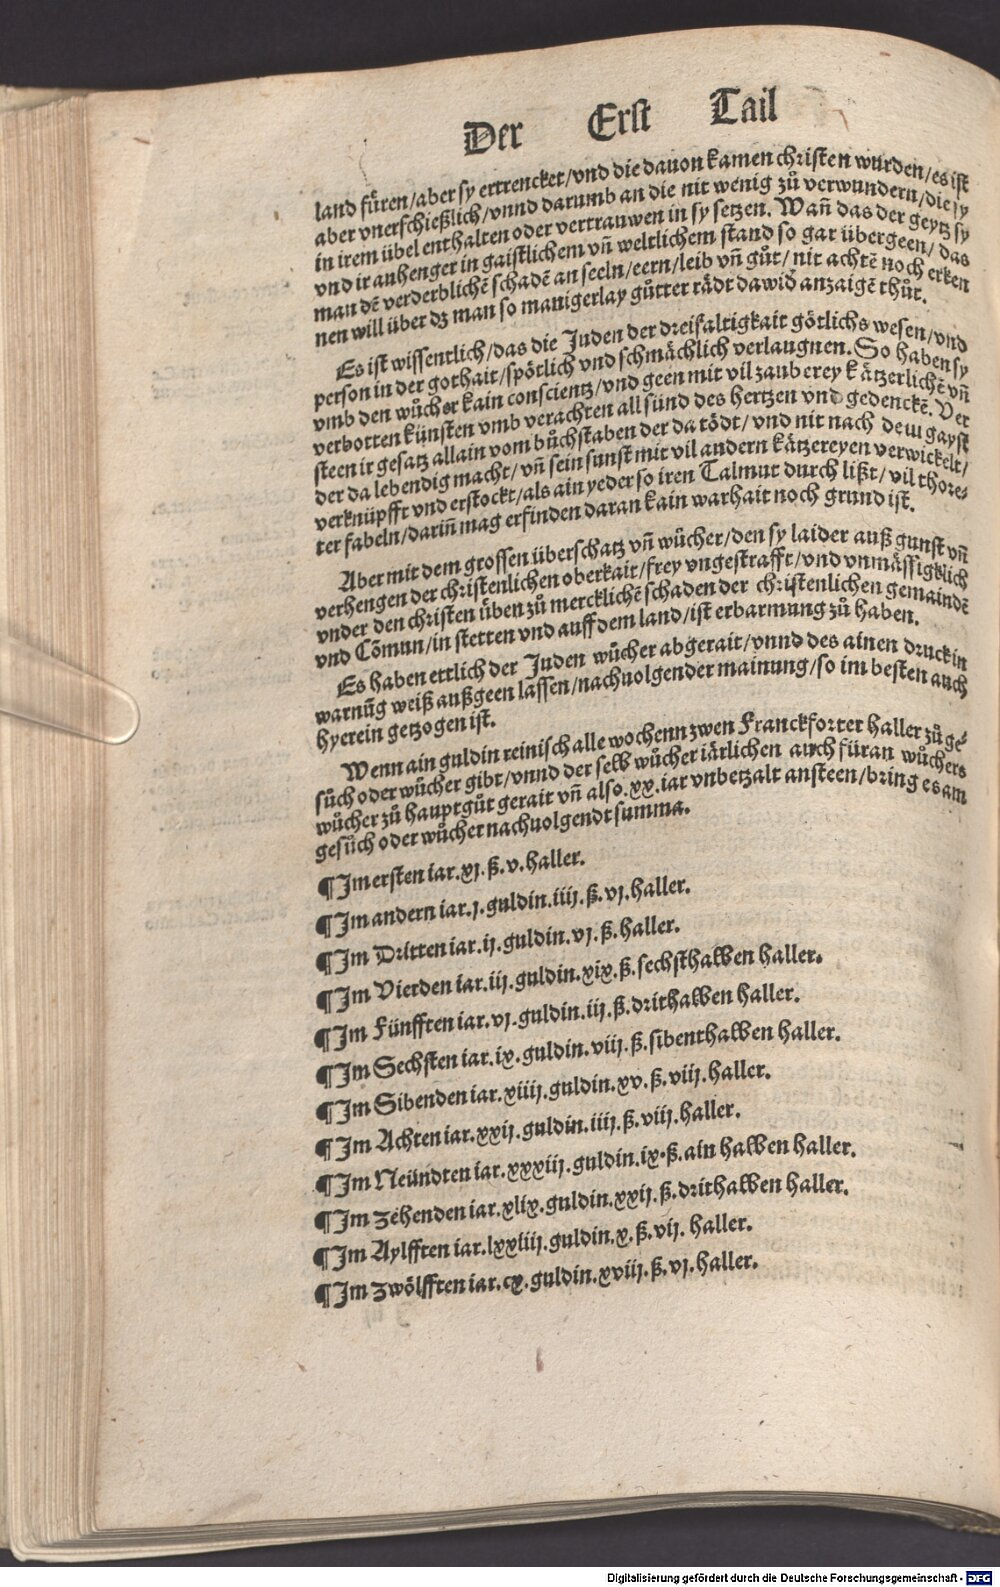 Der Erst Tail
land fůren/aber sy ertrencket/vnd die dauon kamen christen wurden/es ist
aber vnerschießlich/vnnd darumb an die nit wenig zů verwundern/die sy
in irem übel enthalten oder vertrauwen in sy setzen. Wañ das der geytz sy
vnd ir anhenger in gaistlichem vñ weltlichem stand so gar übergeen/ das
man dē verderblichē schadē an seeln/eern/leib vñ gůt/ nit achtē noch erken
nen will über dz man so manigerlay gůtter rädt dawiđ anzaigē thůt.
Es ist wissentlich/das die Juden der dreifaltigkait götlichs wesen/vnd
person in der gothait/spötlich vnd schmächlich verlaugnen. So haben sy
vmb den wůcher kain conscientz/vnd geen mit vil zauberey kätzerlichē vñ
verbotten künsten vmb verachten all sünd des hertzen vnd gedenckē. Ver
steen ir gesatz allain vom bůchstaben der da tödt/vnd nit nach dem gayst
der da lebendig macht/vñ sein sunst mit vil andern kätzereyen verwickelt/
verknüpfft vnd erstockt/als ain yeder so iren Talmut durch lißt/vil thore⸗
ter fabeln/dariñ mag erfinden daran kain warhait noch grund ist.
Aber mit dem grossen überschatz vñ wůcher/den sy laider auß gunst vñ
verhengen der christenlichen oberkait/frey vngestrafft/vnd vnmässigklich
vnder den christen üben zů mercklichē schaden der christenlichen gemaindē
vnd Cōmun/in stetten vnd auff dem land/ist erbarmung zů haben.
Es haben ettlich der Juden wůcher abgerait/vnnd des ainen druck in
warnūg weiß außgeen lassen/nachuolgender mainung/so im besten auch
hyerein getzogen ist.
Wenn ain guldin reinisch alle wochenn zwen Franckforter haller zů ge⸗
sůch oder wůcher gibt/vnnd der selb wůcher iärlichen auch füran wůchers
wůcher zů hauptgůt gerait vñ also.xx.iar vnbetzalt ansteen/bring es am
gesůch oder wůcher nachuolgendt summa.
¶Im ersten iar.xj.ß.v.haller.
¶Im andern iar.j.guldin.iiij.ß.vj.haller.
¶Im Dritten iar.ij.guldin.vj.ß.haller.
¶Im Vierden iar.iij.guldin.xix.ß.sechsthalben haller.
¶Im Fünfften iar.vj.guldin.iij.ß.drithalben haller.
¶Im Sechsten iar.ix.guldin.viij.ß.sibenthalben haller.
¶Im Sibenden iar.xiiij.guldin.xv.ß.viij.haller.
¶Im Achten iar.xxij.guldin.iiij.ß.viij.haller.
¶Im Neündten iar.xxxiij.guldin.ix.ß.ain halben haller.
¶Im zehenden iar.xlix.guldin.xxij.ß.drithalben haller.
¶Im Aylfften iar.lxxiiij.guldin.x.ß.vij. haller.
¶Im zwölfften iar.cx.guldin.xviij.ß.vj.haller.
Digitalisierung gefördert durch die Deutsche Forschungsgemeinschaft - DFG